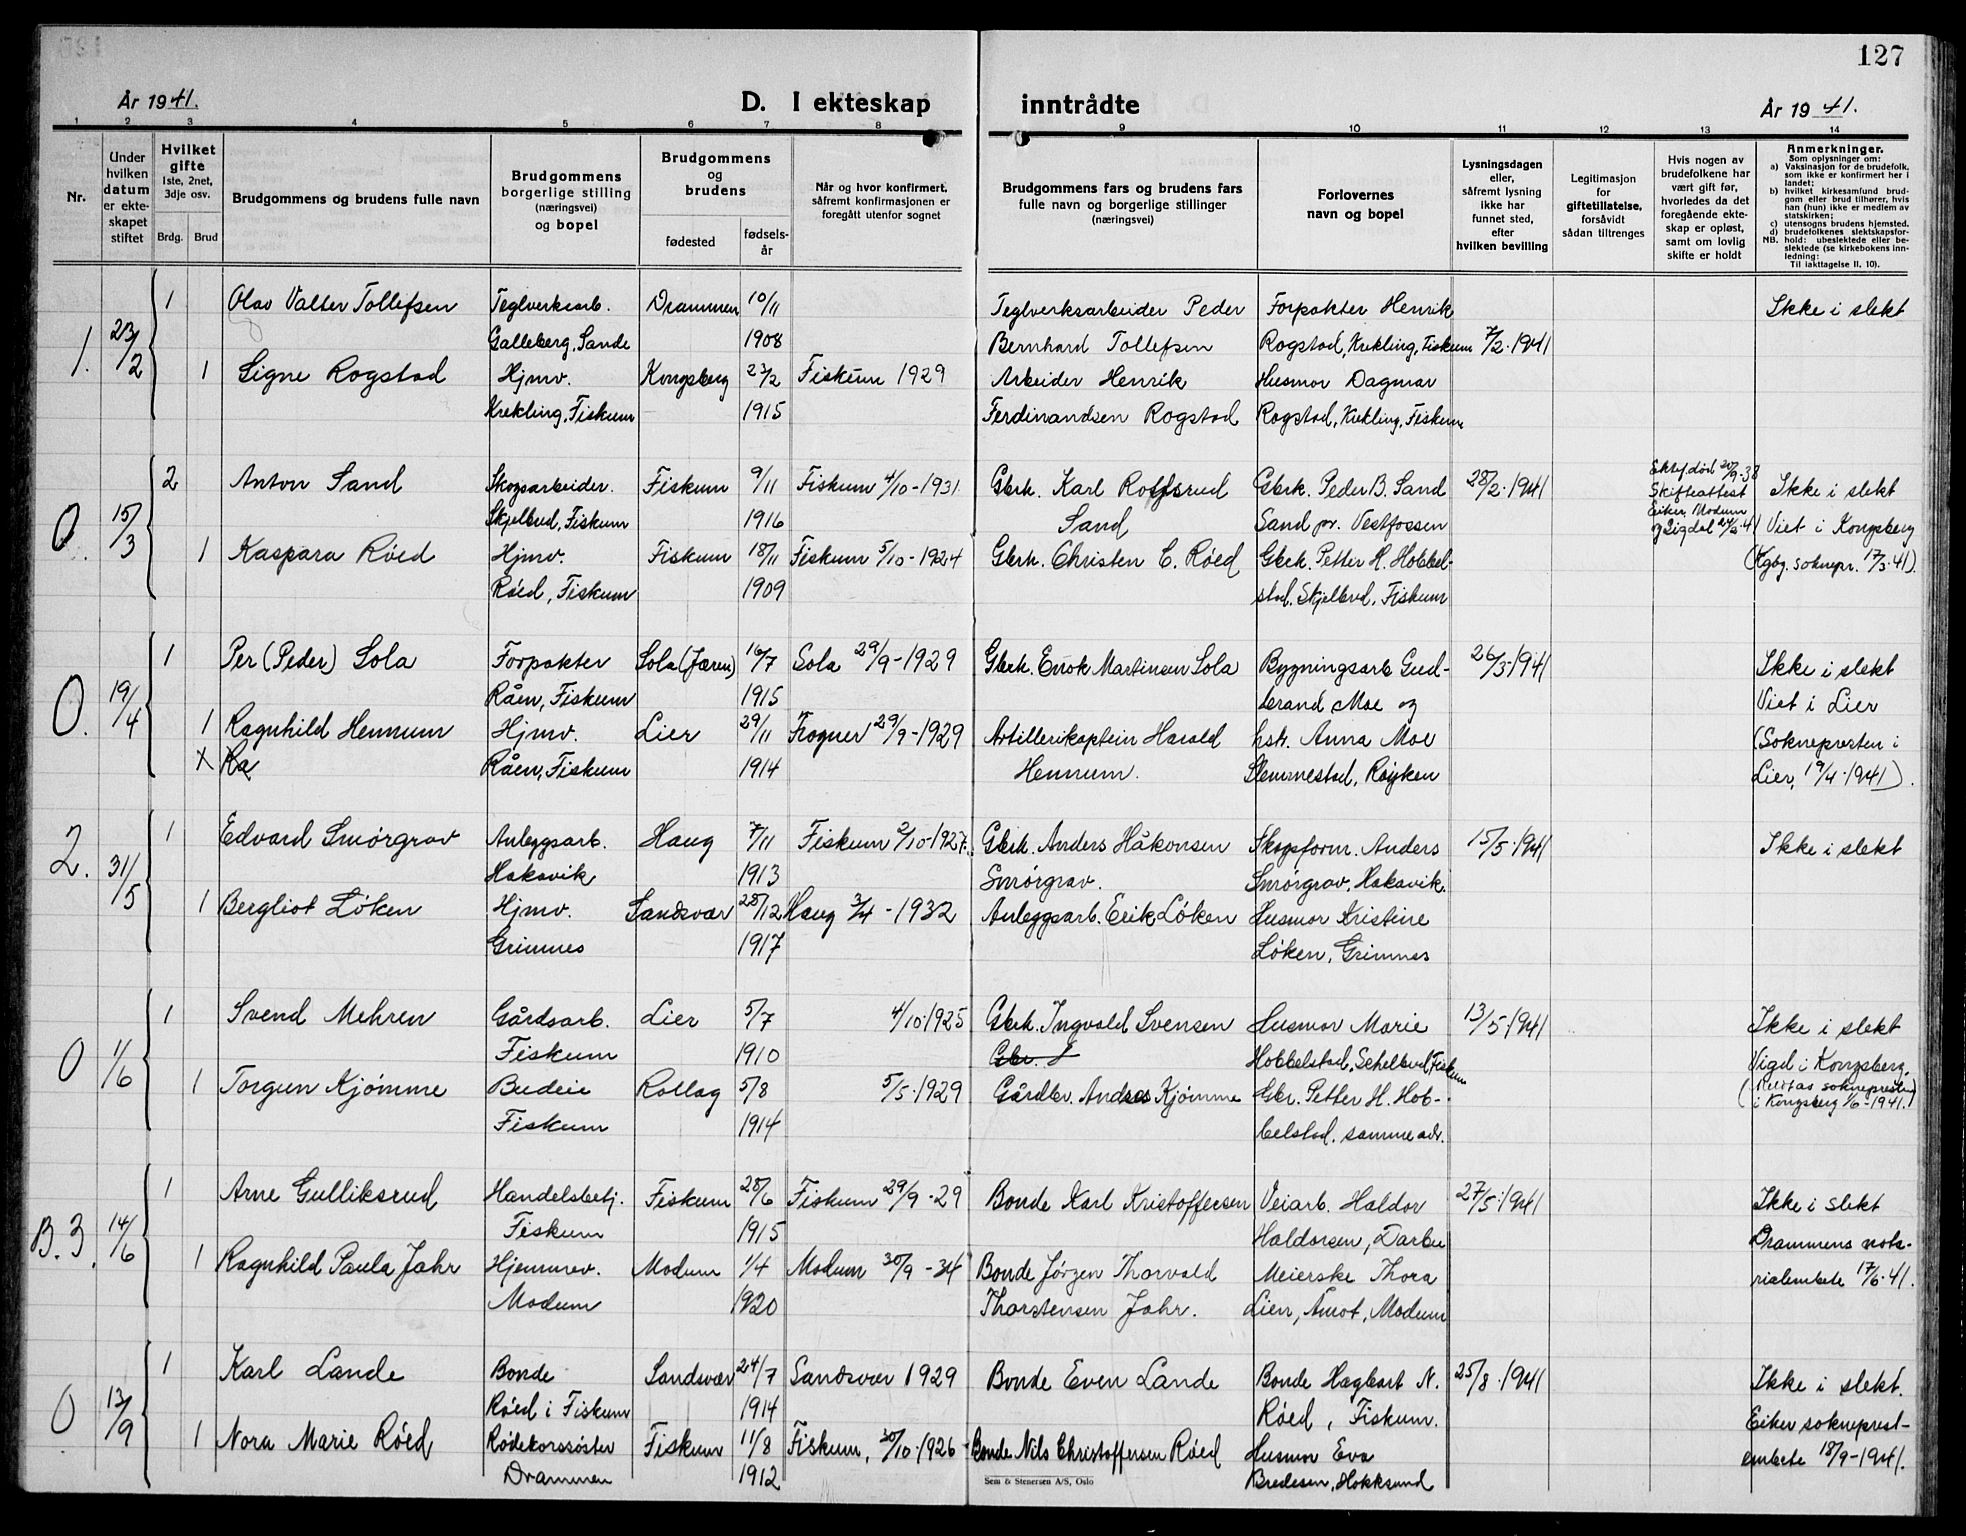 127
År 1941.
D. I ekteskap inntrådte
År 1941.
1 2 3 4 5 6 7 8 9 10 11 12 13 14
Nr.
Under hvilken datum er ekteskapet stiftet
Hvilket gifte
1ste, 2net, 3dje osv.
Brdg. Brud
Brudgommens og brudens fulle navn
Brudgommens borgerlige stilling (næringsvei) og bopel
Brudgommens og brudens
fødested
fødselsår
Når og hvor konfirmert, såfremt konfirmasjonen er foregått utenfor sognet
Brudgommens fars og brudens fars fulle navn og borgerlige stillinger (næringsvei)
Forlovernes navn og bopel
Lysningsdagen eller, såfremt lysning ikke har funnet sted, efter hvilken bevilling
Legitimasjon for giftetillatelse, forsåvidt sådan tiltrenges
Hvis nogen av brudefolkene har vært gift før, hvorledes da det foregående ekteskap er opløst, samt om lovlig skifte er holdt
Anmerkninger.
Som oplysninger om:
a) Vaksinasjon for de brudefolk, som ikke er konfirmert her i landet;
b) hvilket kirkesamfund brudgom eller brud tilhører, hvis han (hun) ikke er medlem av statskirken;
c) utensogns brudens hjemsted.
d) brudefolkenes slektskapsforhold: ubeslektede eller beslektede (se kirkebokens innledning:
NB. Til iakttagelse II, 10).
1 Olav Valter Tollefsen Teglverksarb. Drammen 10/11 Teglverksarbeider Peder Forpakter Henrik Ikke i slekt
1. 23/2 Galleberg, Sande 1908 Bernhard Tollefsen Rogstad, Krekling, Fiskum 7/2-1941
1 Signe Rogstad Hjmv. Kongsberg 23/2 Fiskum 1929 Arbeider Henrik Husmor Dagmar
Krekling, Fiskum 1915 Ferdinandsen Rogstad Rogstad, Krekling, Fiskum
2 Anton Sand Skogsarbeider. Fiskum 9/11 Fiskum 4/10-1931 Gbrk. Karl Roffsrud Gbrk. Peder B. Sand 28/2-1941 Ektef. død 20/9-38 Skifteattest Eiker, Modum og Sigdal Ikke i slekt
0. 15/3 Skjelbred, Fiskum 1916 Sand Sand pr. Vestfossen Viet i Kongsberg
1 Kaspara Røed Hjmv. Fiskum 18/11 Fiskum 5/10-1924 Gbrk. Christen C. Røed Gbrk. Petter H. Hobbel- (Kgbg. soknepr. 17/3-41).
Røed, Fiskum 1909 stad. Skjelbred, Fiskum
1 Per (Peder) Sola Forpakter Sola (Jæren) 16/7 Sola 29/9-1929 Gbrk. Enok Martinsen Sola Bygningsarb. Gud- 26/3-1941 Ikke i slekt
0. 19/4 Råen, Fiskum 1915 brand Moe og Viet i Lier
1 Ragnhild Hennum Hjmv. Lier 29/11 Frogner 29/9-1929 Artillerikaptein Harald hstr. Anna Moe (Soknepresten i
X Ra Råen, Fiskum 1914 Hennum. Slemmestad, Røyken Lier, 19/4-1941).
1 Edvard Smørgrav Anleggsarb. Haug 7/11 Fiskum 2/10-1927. Gbrk. Anders Håkonsen Skogsform. Anders 15/5-1941 Ikke i slekt
2. 31/5 Hakavik 1913 Smørgrav. Smørgrav, Hakavik.
1 Bergliot Løken Hjmv. Sandsvær 28/12 Haug 3/4-1932 Anleggsarb. Erik Løken Husmor Kristine
Grimnes 1917 Løken, Grimnes
1 Svend Mehren Gårdsarb. Lier 5/7 4/10-1925 Gbrk. Ingvald Svensen Husmor Marie 13/5-1941 Ikke i slekt
0 1/6 Fiskum 1910 Gbr. S Hobbelstad, Schelbred, Fiskum Vigd i Kongsberg.
1 Torgun Kjømme Budeie Rollag 5/8 5/5-1929 Gårdbr. Andres Kjømme Gbr. Petter H. Hob- soknepresten
Fiskum 1914 belstad. samme adr. i Kongsberg 1/6-1941.)
1 Arne Gulliksrud Handelsbetj. Fiskum 28/6 Fiskum 29/9-29 Bonde Karl Kristoffersen Veiarb. Haldor 27/5-1941 Ikke i slekt
B. 3. 14/6 Fiskum 1915 Haldorsen, Darbu Drammens nota-
1 Ragnhild Paula Jahr Hjemmev. Modum 1/4 Modum 30/9-34 Bonde Jørgen Thorvald Meierske Thora rialembete 17/6-41.
Modum 1920 Thorstensen Jahr. Lien, Åmot, Modum
1 Karl Lande Bonde Sandsvær 24/7 Sandsvær 1929 Bonde Even Lande Bonde Hagbart N. 25/8-1941 Ikke i slekt.
0 13/9 Røed i Fiskum 1914 Røed, Fiskum. Eiker sokneprest-
1 Nora Marie Røed Rødekorssøster Fiskum 11/8 Fiskum, 30/10-1926 Bonde Nils Christoffersen Røed Husmor Eva embete 18/9-1941.
Drammen 1912 Bredesen, Hokksund
Sem & Stenersen A/S, Oslo